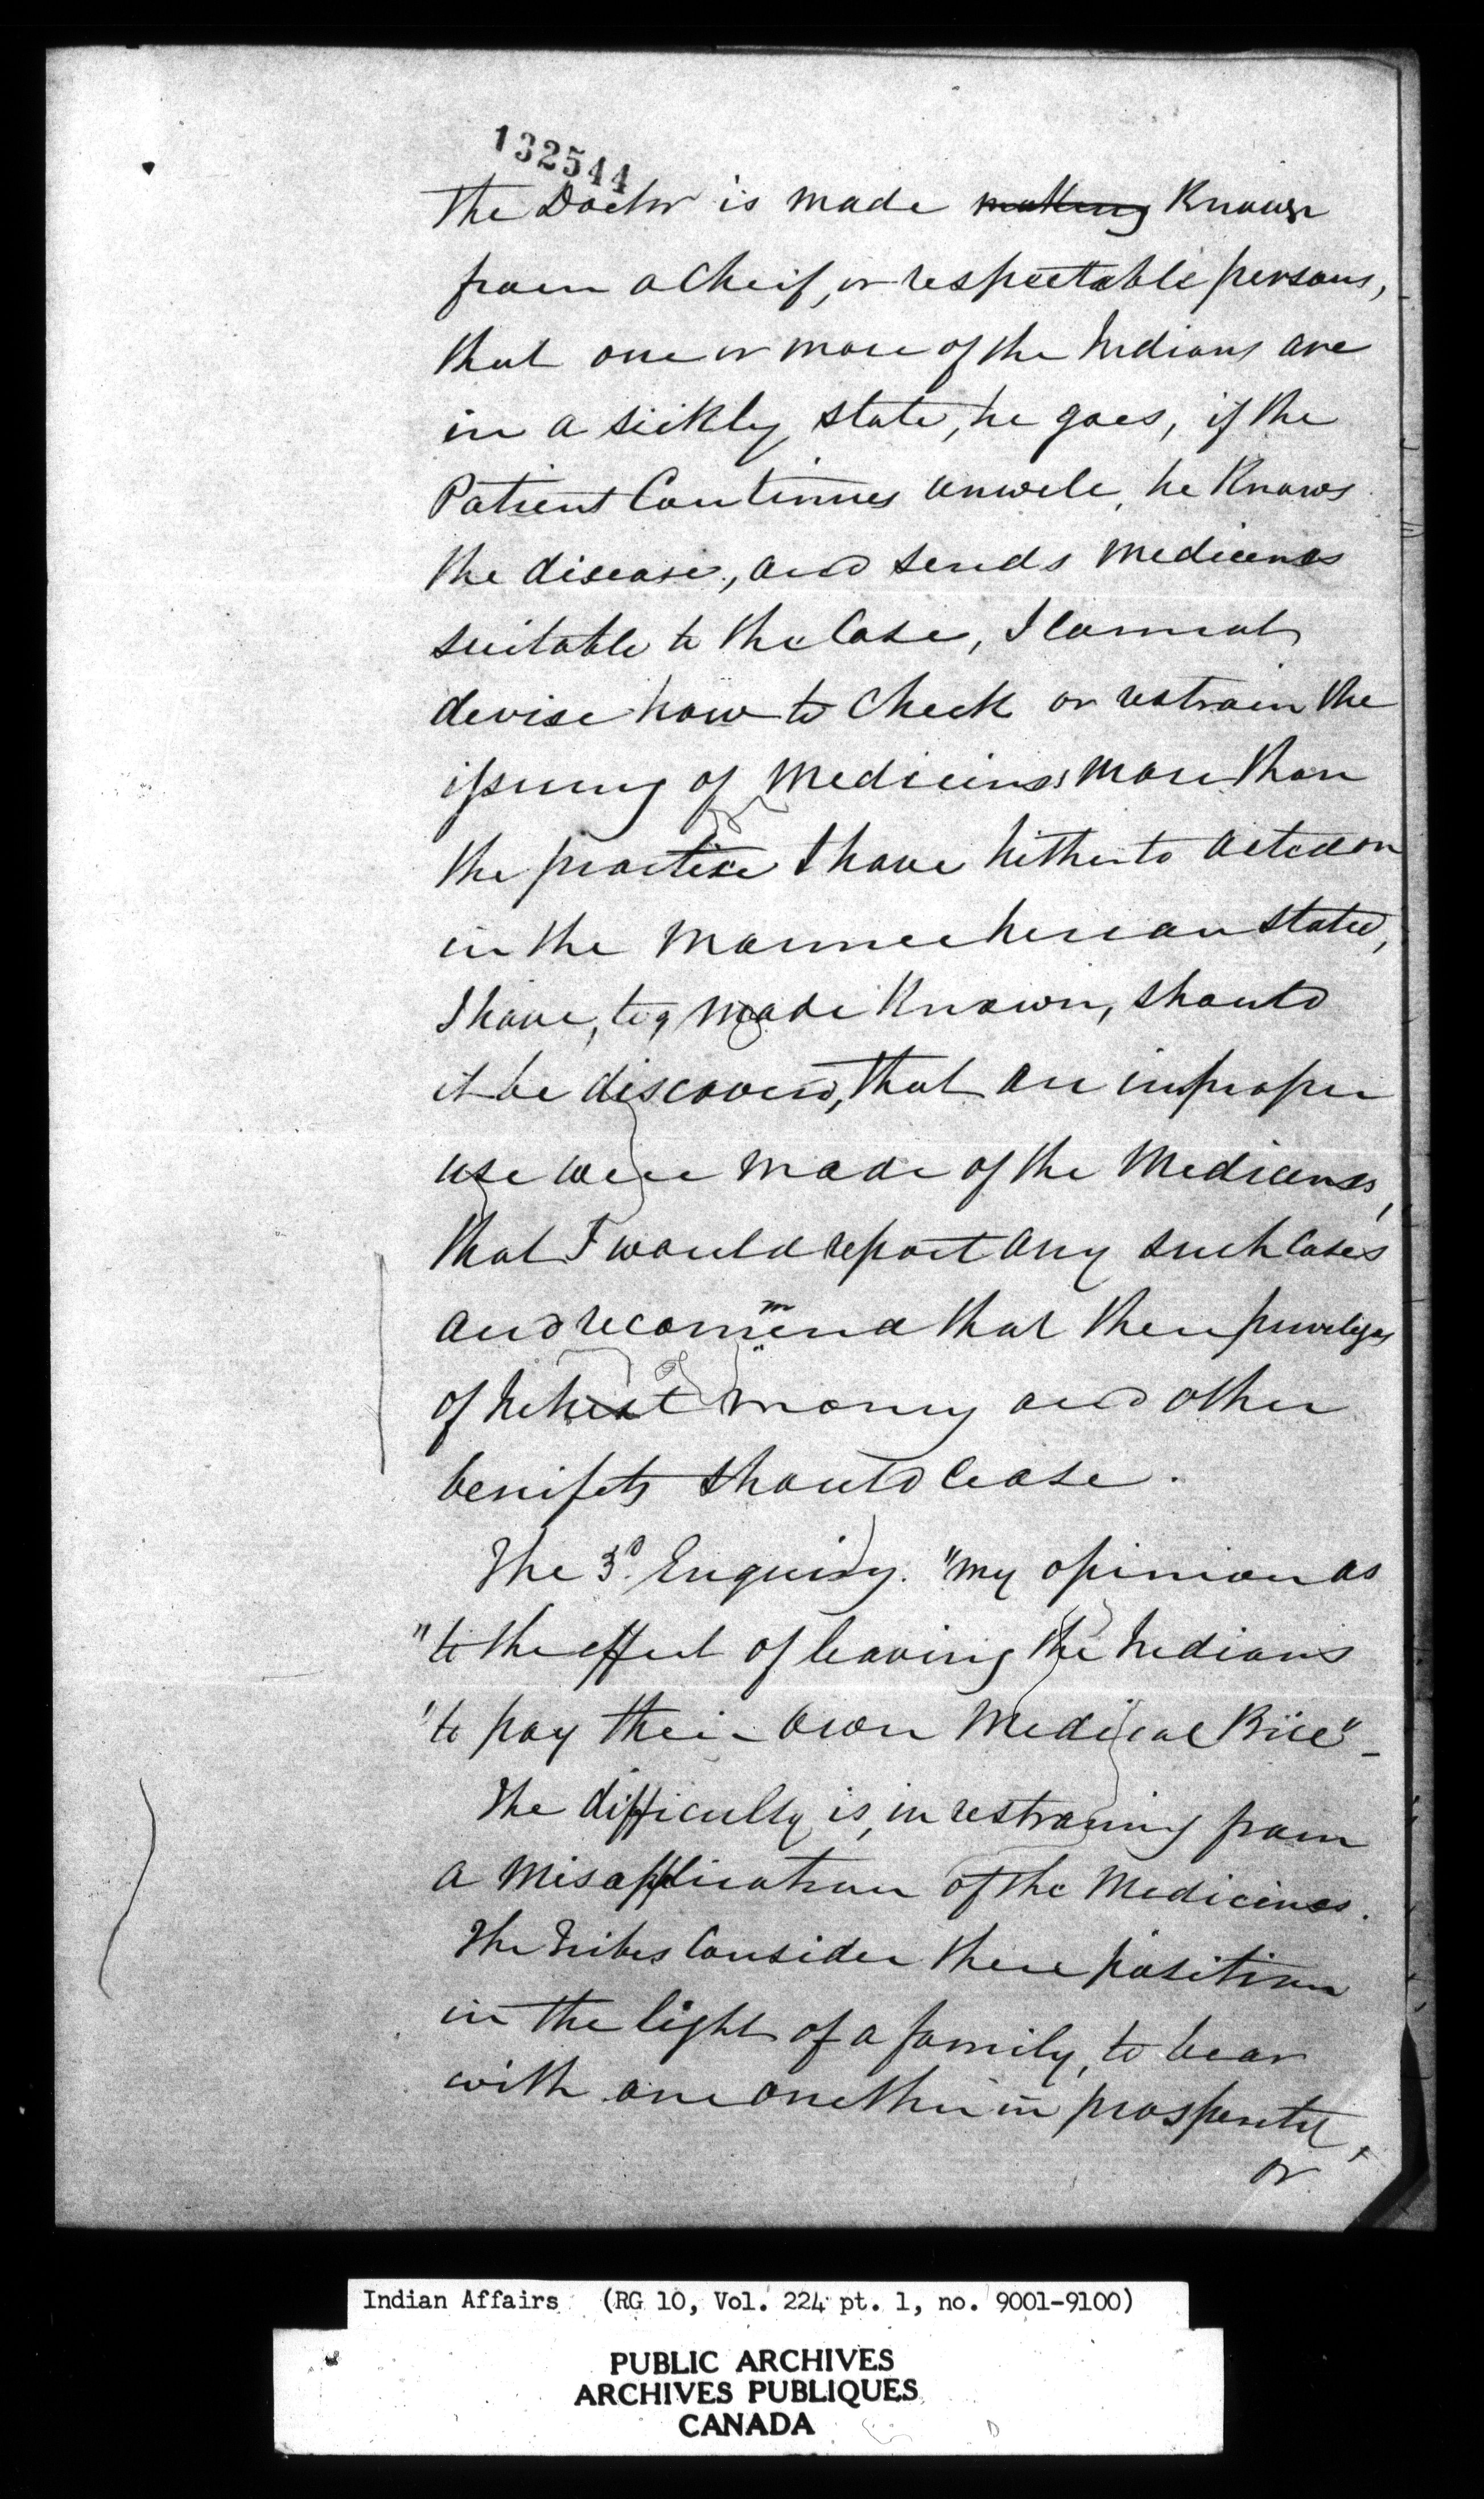 132544
The Doctor is made making Known
from a Cheif, or respectable persons,
that one or more of the Indians are
in a sickly state, he goes, if the
Patient Continues unwell, he Knows
the disease, and sends medicines
suitable to the Case, I cannot
devise how to Check or restrain the
issuing of Medicines more than
the practice I have hitherto acted on
in the manner herein stated,
I have, to, made Known, should
it be discoverd, that an improper
use were made of the Medicines,
that I would report any such Cases
and recommend that their priveleges
of money and other
benifets should cease.
The 3d. Enquiry. "my opinion as
"to the effect of leaving the Indians
"to pay their own Medical Bill"
The difficulty is, in restraining from
a misapplication of the Medicines.
The Tribes Consider there position
in the light of a family, to bear
with one another in prosperity,
or
Indian Affairs (RG 10, Vol. 224 pt. 1, no. 9001-9100)
PUBLIC ARCHIVES
ARCHIVES PUBLIQUES
CANADA